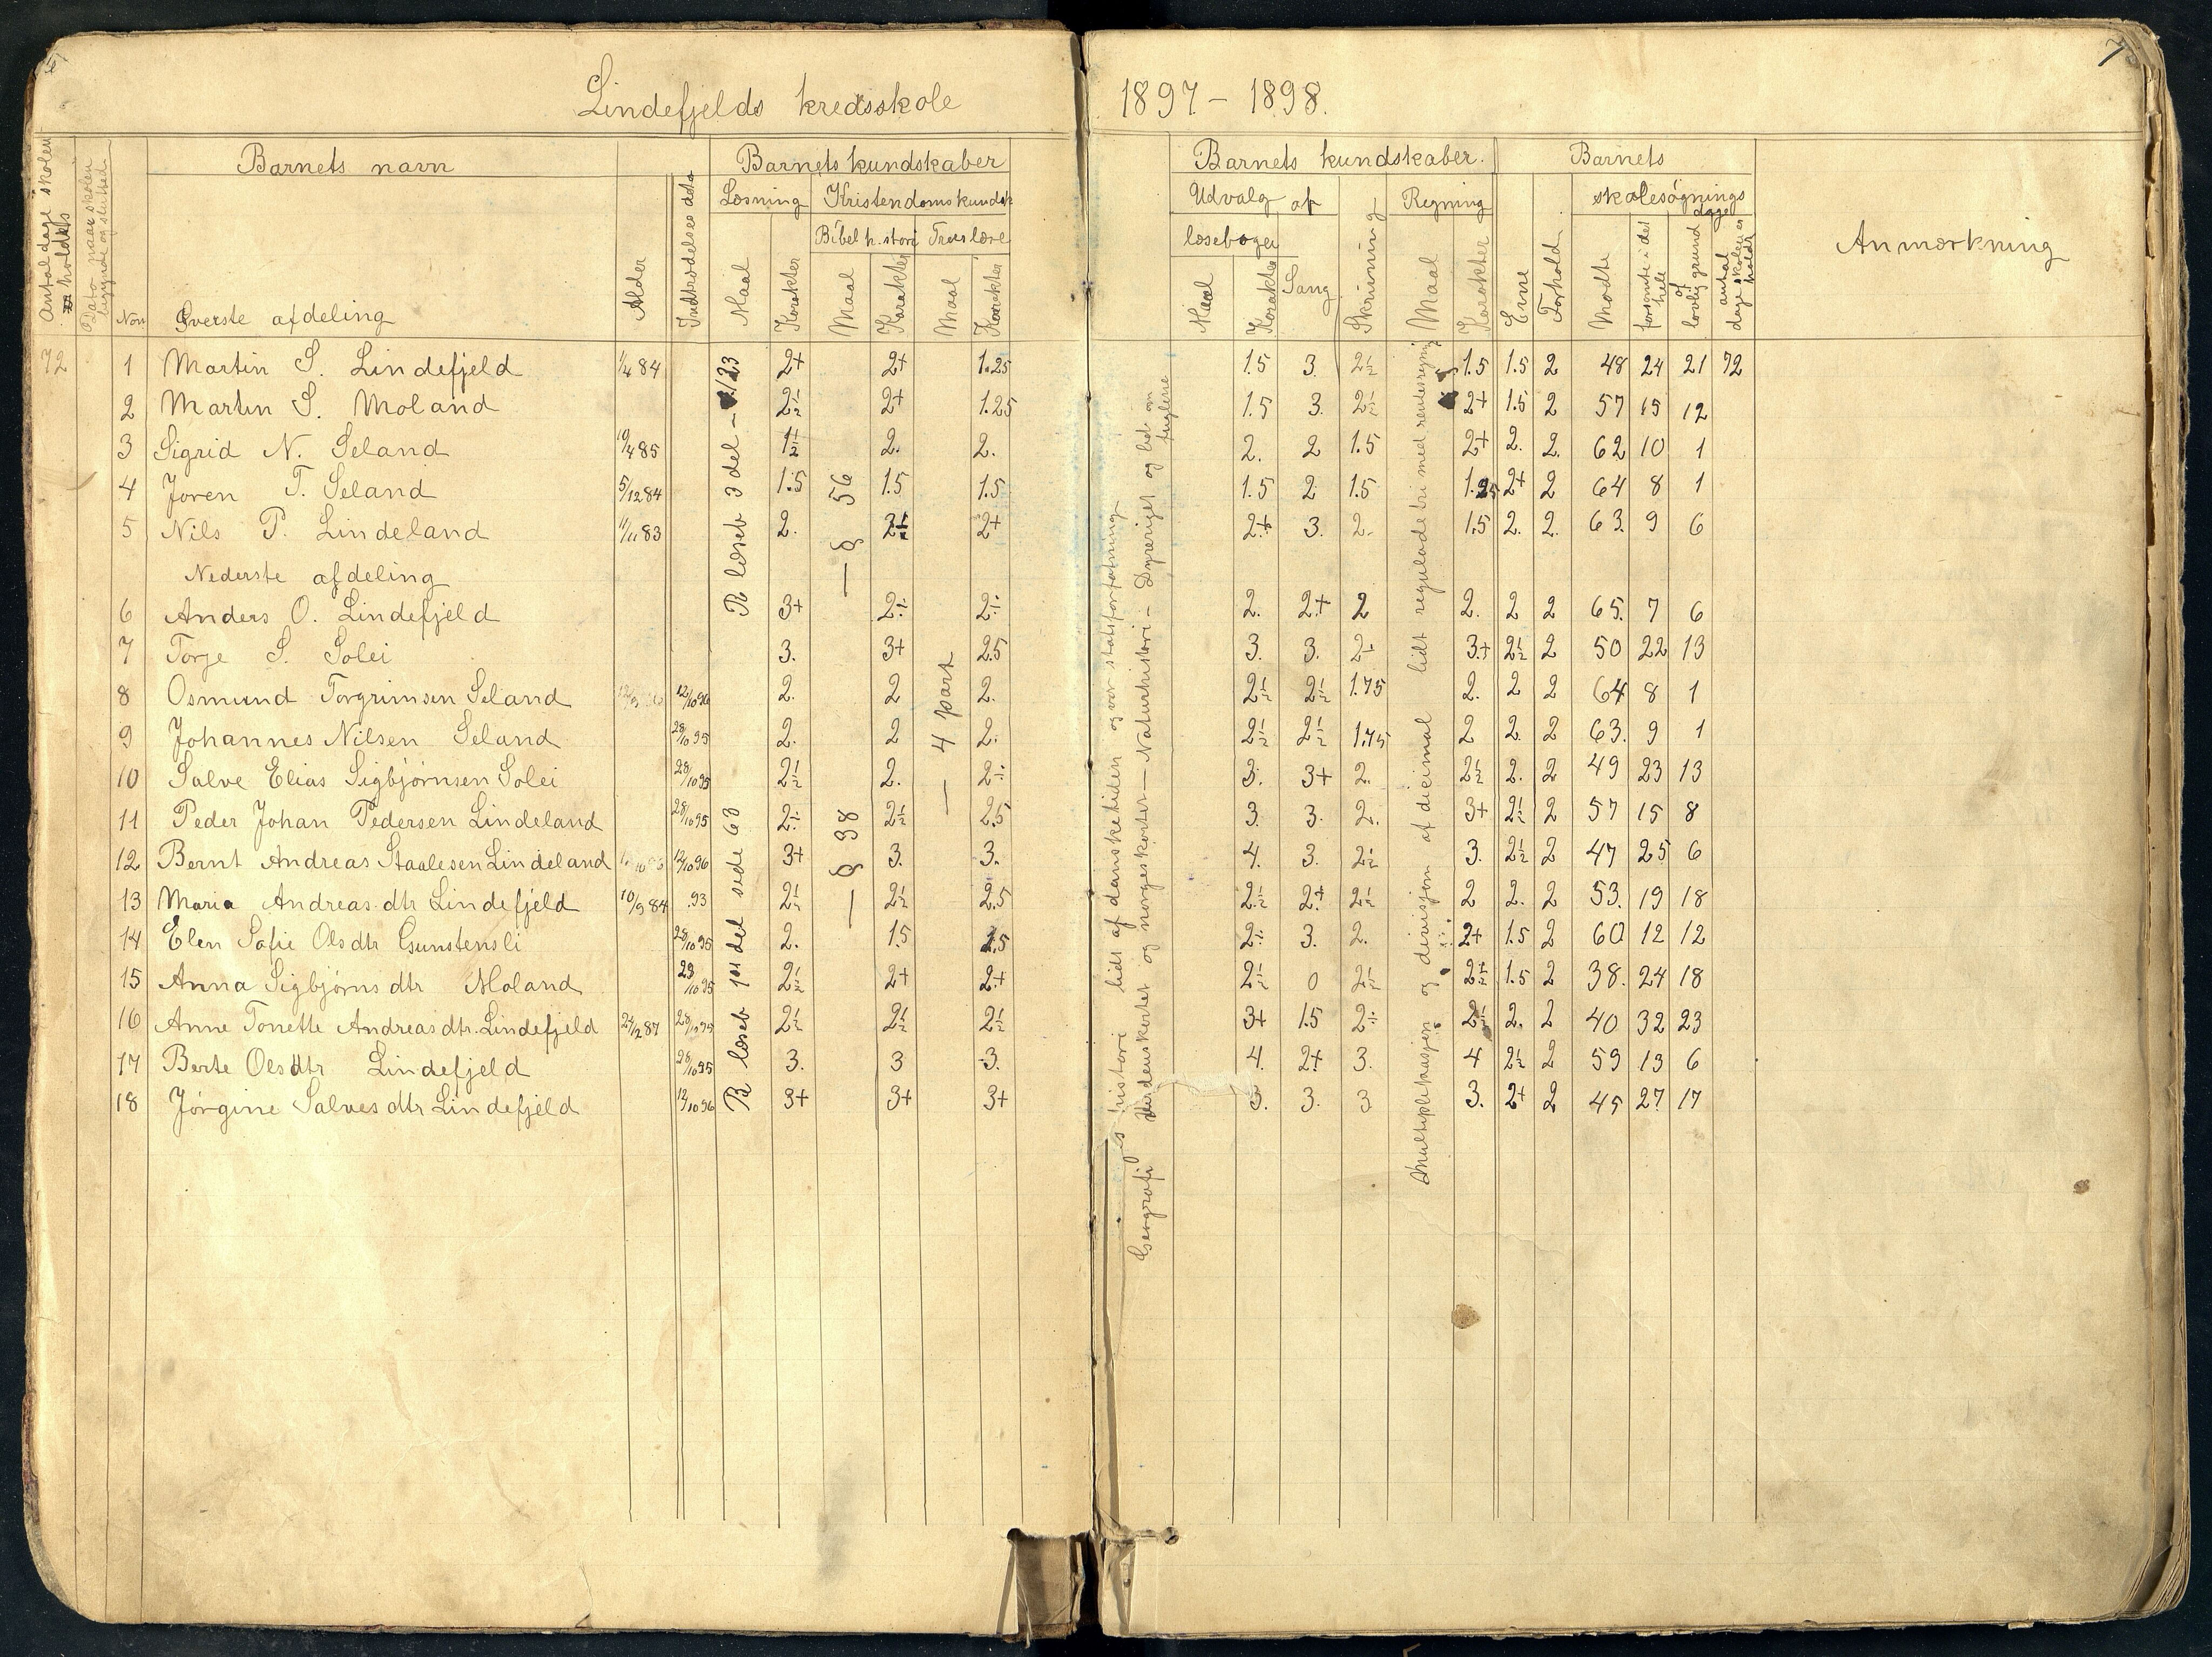 Lindefjelds kredsskole 1897 – 1898.
7
Antal dage skolen er holdt
Dato naar skolen begyndte og slutted
Non
Barnets navn
Øverste afdeling
Alder
Indtrædelses dato
Barnets kundskaber
Læsning
Maal
Karakter
Kristendomskundsk
Bibelh.stori
Maal
Karakter
Troslære
Maal
Karakter
Barnets kundskaber.
Udvalg af
læsebøger
Maal
Karakter
Sang
Skrivning
Regning
Maal
Karakter
Barnets
Evne
Forhold
skolesøgnings
dage
Mødte
forsømte i det hele
af lovlig grund
antal dage skolen er holdt
Anmærkning
72 1 Martin S. Lindefjeld 1/4 84 2+ 2+ 1.25 1.5 3. 2½ 1.5 1.5 2 48 24 21 72
2 Martin S. Moland 2½ 2+ 1.25 1.5 3. 2½ 2+ 1.5 2 57 15 12
3 Sigrid N. Seland 19/4 85 1½ 2. 2. 2. 2 1.5 2+ 2. 2. 62 10 1
4 Joren T. Seland 5/12 84 1.5 1.5 1.5 1.5 2 1.5 1.25 2+ 2 64 8 1
5 Nils P. Lindeland 11/11 83 2. 2½ 2+ 2+ 3. 2. 1.5 2. 2. 63. 9 6
Nederste afdeling
6 Anders O. Lindefjeld 3+ 2÷ 2÷ 2. 2+ 2 2. 2 2 65. 7 6
7 Torje S. Solei 3. 3+ 2.5 3. 3. 2÷ 3+ 2½ 2 50 22 13
8 Osmund Torgrimsen Seland 12/10 96 2. 2 2. 2½ 2½ 1.75 2. 2 2 64 8 1
9 Johannes Nilsen Seland 28/10 95 2. 2 2. 2½ 2½ 1.75 2 2. 2 63. 9 1
10 Salve Elias Sigbjørnsen Solei 28/10 95 2½ 2. 2÷ 3. 3+ 2. 2½ 2. 2 49 23 13
11 Peder Johan Pedersen Lindeland 28/10 95 2÷ 2½ 2.5 3. 3. 2. 3+ 2½ 2 57 15 8
12 Bernt Andreas Staalesen Lindeland 12/10 96 3+ 3. 3. 4. 3. 2½ 3. 2½ 2 47 25 6
13 Maria Andreas.dtr Lindefjeld 10/9 84 .93 2½ 2½ 2.5 2½ 2+ 2½ 2 2. 2 53. 19 18
14 Elen Sofie Olsdtr Gunstensli 28/10 95 2. 1.5 2.5 2÷ 3. 2. 2+ 1.5 2 60 12 12
15 Anna Sigbjørns dtr Moland 29/10 95 2½ 2+ 2+ 2½ 0 2½ 2½ 1.5 2 38. 24 18
16 Anne Tonette Andreasdtr. Lindefjeld 24/12 87 28/10 95 2½ 2½ 2½ 3+ 1.5 2÷ 2½ 2. 2 40 32 23
17 Berte Olsdtr Lindefjeld 28/10 95 3. 3 3. 4. 2+ 3. 4 2½ 2 59 13 6
18 Jørgine Salves dtr Lindefjeld 12/10 96 3+ 3+ 3+ 3. 3. 3 3. 2+ 2 45 27 17
R læseb 3 del –
R læseb 1ste del side 63
— § 56
— § 38
— 4 part
histori lidt af dansketiden og vor statsforfatning
Geografi Verdenskortet og norgeskortet — Naturhistori — Dyreriget og lidt om fuglene
Multiplikasjon og divisjon af decimal lidt reguladetri med rentesregning